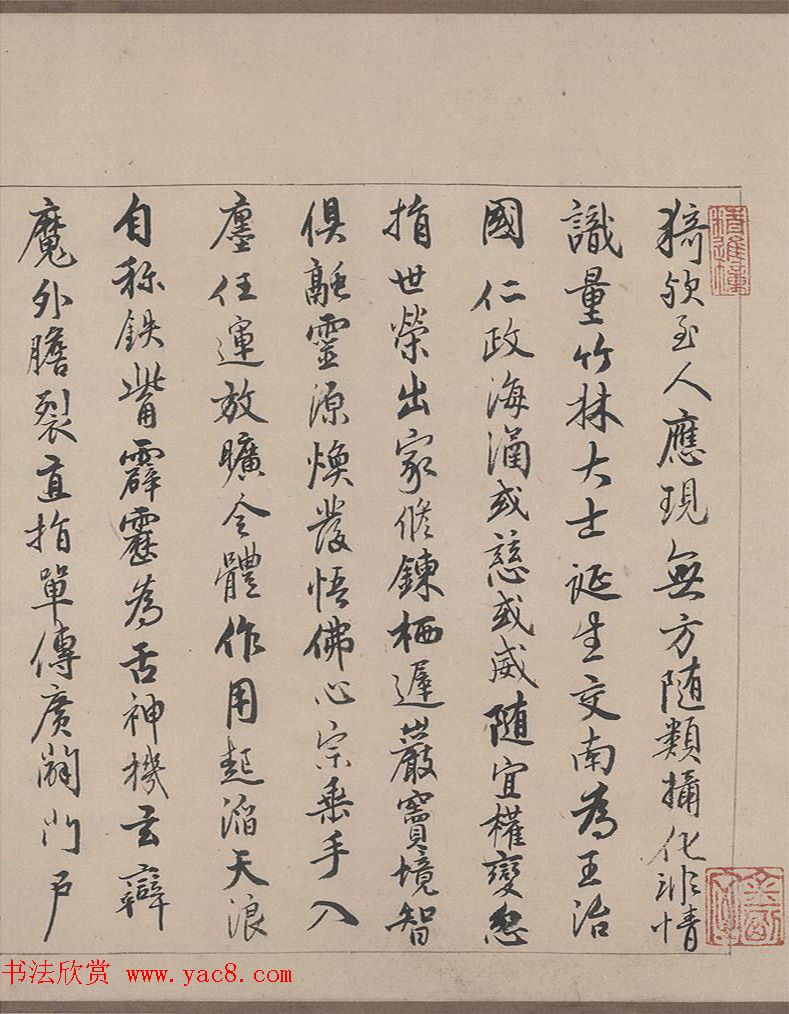 猗欤至人應現無方随類攝化非情
識量竹林大士誕生交南為王治
國仁政海涵或慈或威随宜權變忽
捐世榮出家修鍊栖遲巖竇境智
俱融靈源煥發悟佛心宗垂手入
廛任運放曠全體作用起滔天浪
自称鉄觜霹靂為舌神機玄辯
魔外膽裂直指單傳廣闢門户
书法欣赏 www.yac8.com